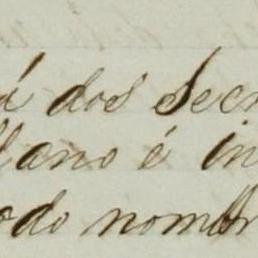 á dos Secr
llano é in
odo nombr